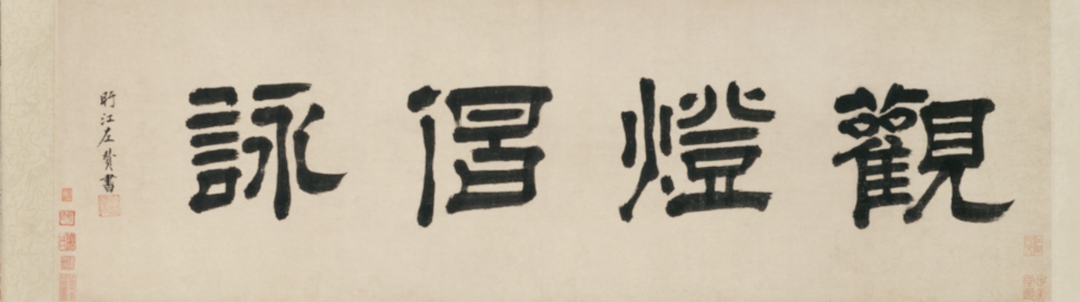 觀燈倡詠
盱江左賛書